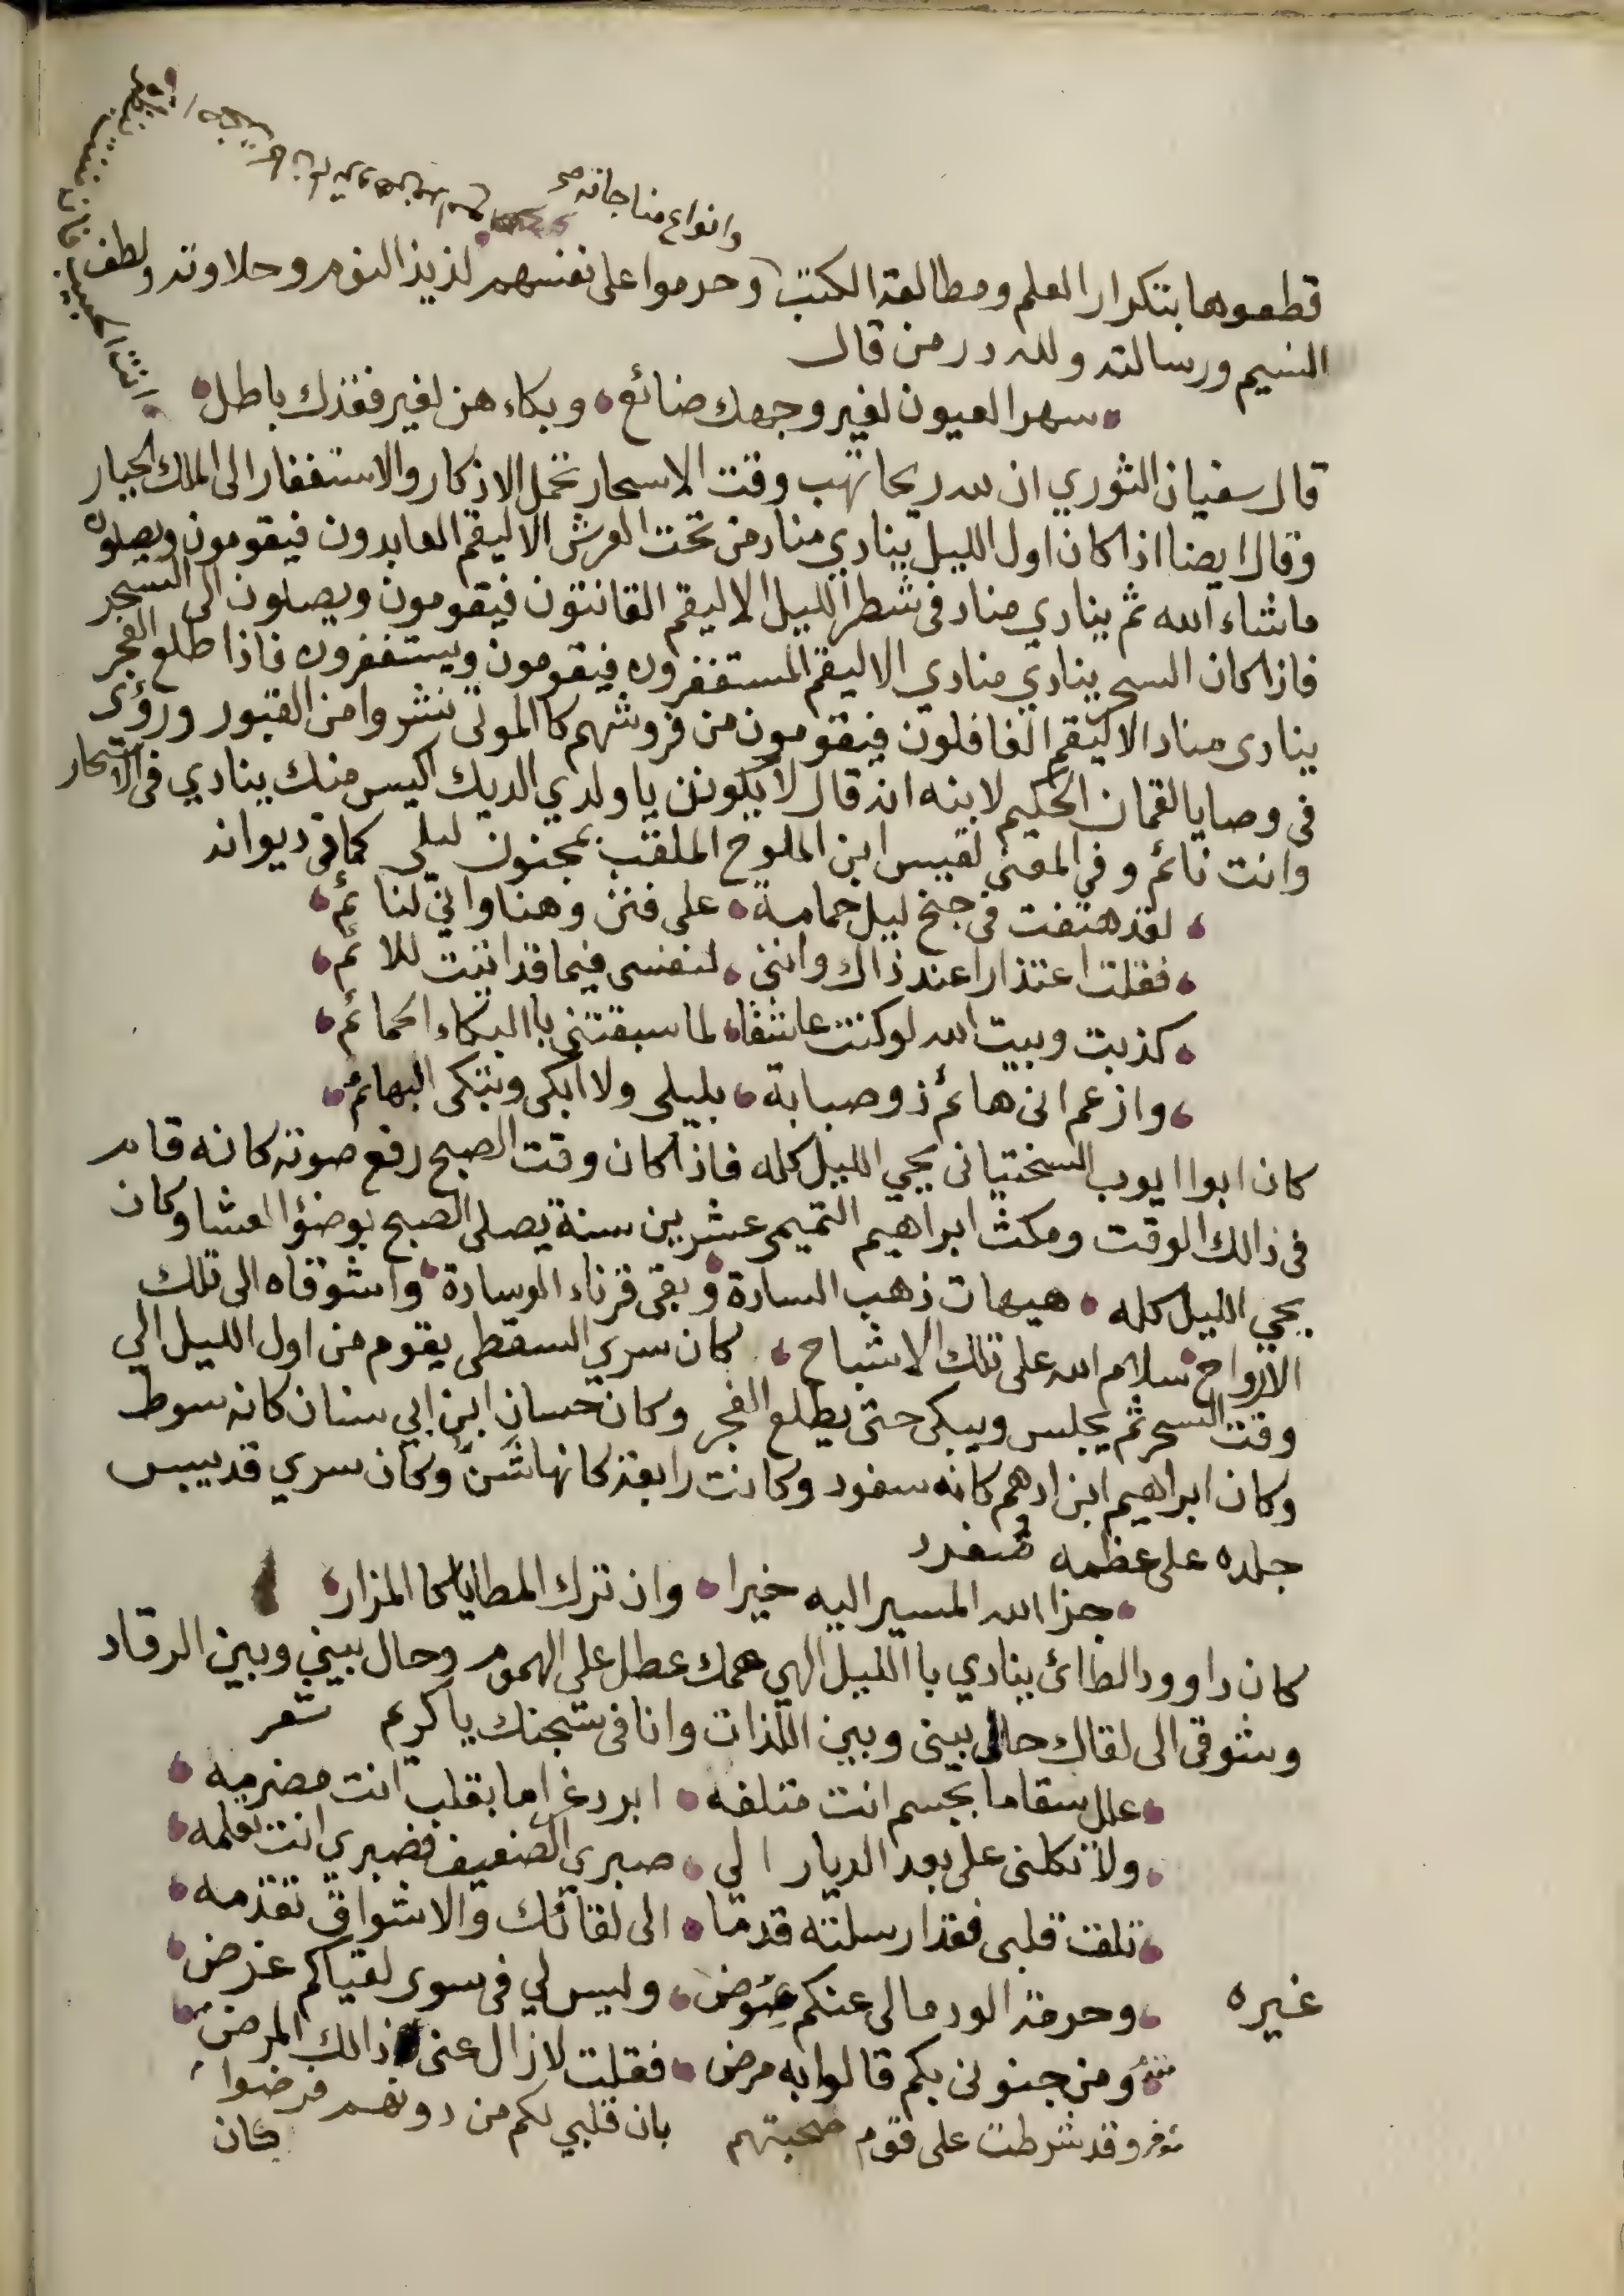 وانواع مناجاته صح
قطعوها بتكرار العلم ومطالعة الكتب وحرموا على نفسهم لذيذ النوم وحلاوته ولطف
النسيم ورسالته ولله در من قال
سهر العيون لغير وجهك ضائع وبكاءهن لغير فقدك باطل
قال سفيان الثوري ان لله ريحا تهب وقت الاسحار تحمل الاذكار والاستغفار الى الملك الجبار
وقال ايضا اذا كان اول الليل ينادي مناد من تحت العرش الا ليقم العابدون فيقومون ويصلون
ماشاء الله ثم ينادي مناد في شطر الليل الا ليقم القانتون فيقومون ويصلون الى السحر
فاذا كان السحر ينادي منادي الا ليقم المستغفرون فيقومون ويستغفرون فاذا طلع الفجر
ينادى مناد الا ليقم الغافلون فيقومون من فروشهم كا الموتى نشروا من القبور ورؤى
في وصايا لقمان الحكيم لابنه انه قال لا يكونن يا ولدي الديك اكيس منك ينادي في الاسحار
وانت نائم وفي المعنى لقيس ابن الملوح الملقب بمجنون ليلى كما في ديوانه
لقد هتفت في جنح ليل حمامة على فنن وهنا واني لنائم
فقلت اعتذارا عند ذاك وانني لنفسى فيما قد اتيت للائم
كذبت وبيت الله لو كنت عاشقا لما سبقتني با البكاء الحمائم
وازعم انى هائم ذو صبابة بليلى ولا ابكى وتبكى البهائم
كان ابوا ايوب السختيانى يحي الليل كله فاذا كان وقت الصبح رفع صوته كانه قام
في ذالك الوقت ومكث ابراهيم التميمى عشرين سنة يصلى الصبح بوضؤ العشا وكان
يحي الليل كله هيهات ذهب السادة وبقى قرناء الوسادة واشوقاه الى تلك
الارواح سلام الله على تلك الاشباح كان سري السقطى يقوم من اول الليل الي
وقت السحر ثم يجلس ويبكى حتى يطلع الفجر وكان حسان ابن ابي سنان كانه سوط
وكان ابراهيم ابن ادهم كانه سفود وكانت رابعة كانها شن وكان سري قد يبس
جلده على عظمه مفرد
جزا الله المسير اليه خيرا وان ترك المطايا كا المزار
كان داوود الطائ ينادي با الليل الهي همك عطل على الهموم وحال بيني وبين الرقاد
وشوقى الى لقاك حال بينى وبين اللذات وانا فى سجنك يا كريم شعر
علل سقاما بجسم انت متلفه ابرد غراما بقلب انت مضرمه
ولا تكلنى على بعد الديار الى صبري الضعيف فصبري انت تعلمه
تلقت قلبى فقد ارسلته قدما الى لقائك والاشواق تقدمه
غيره وحرمة الود مالى عنكم عوض وليس لي في سوى لقياكم غرض
ومن جنونى بكم قالوا به مرض فقلت لا زال عنى ذالك المرض
وقد شرطت على قوم صحبتهم بان قلبي لكم من دونهم فرضوا
كان